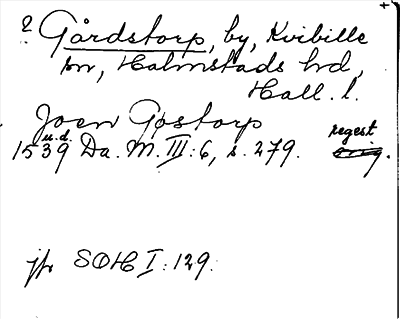 ? Gårdstorp, by, Kvibille
sn, Halmstads hd,
Hall. l.
Joen Gøstorp
u.d. regest
1539 Da. M. III:6, s. 279. orig.
jfr SOH I:129.